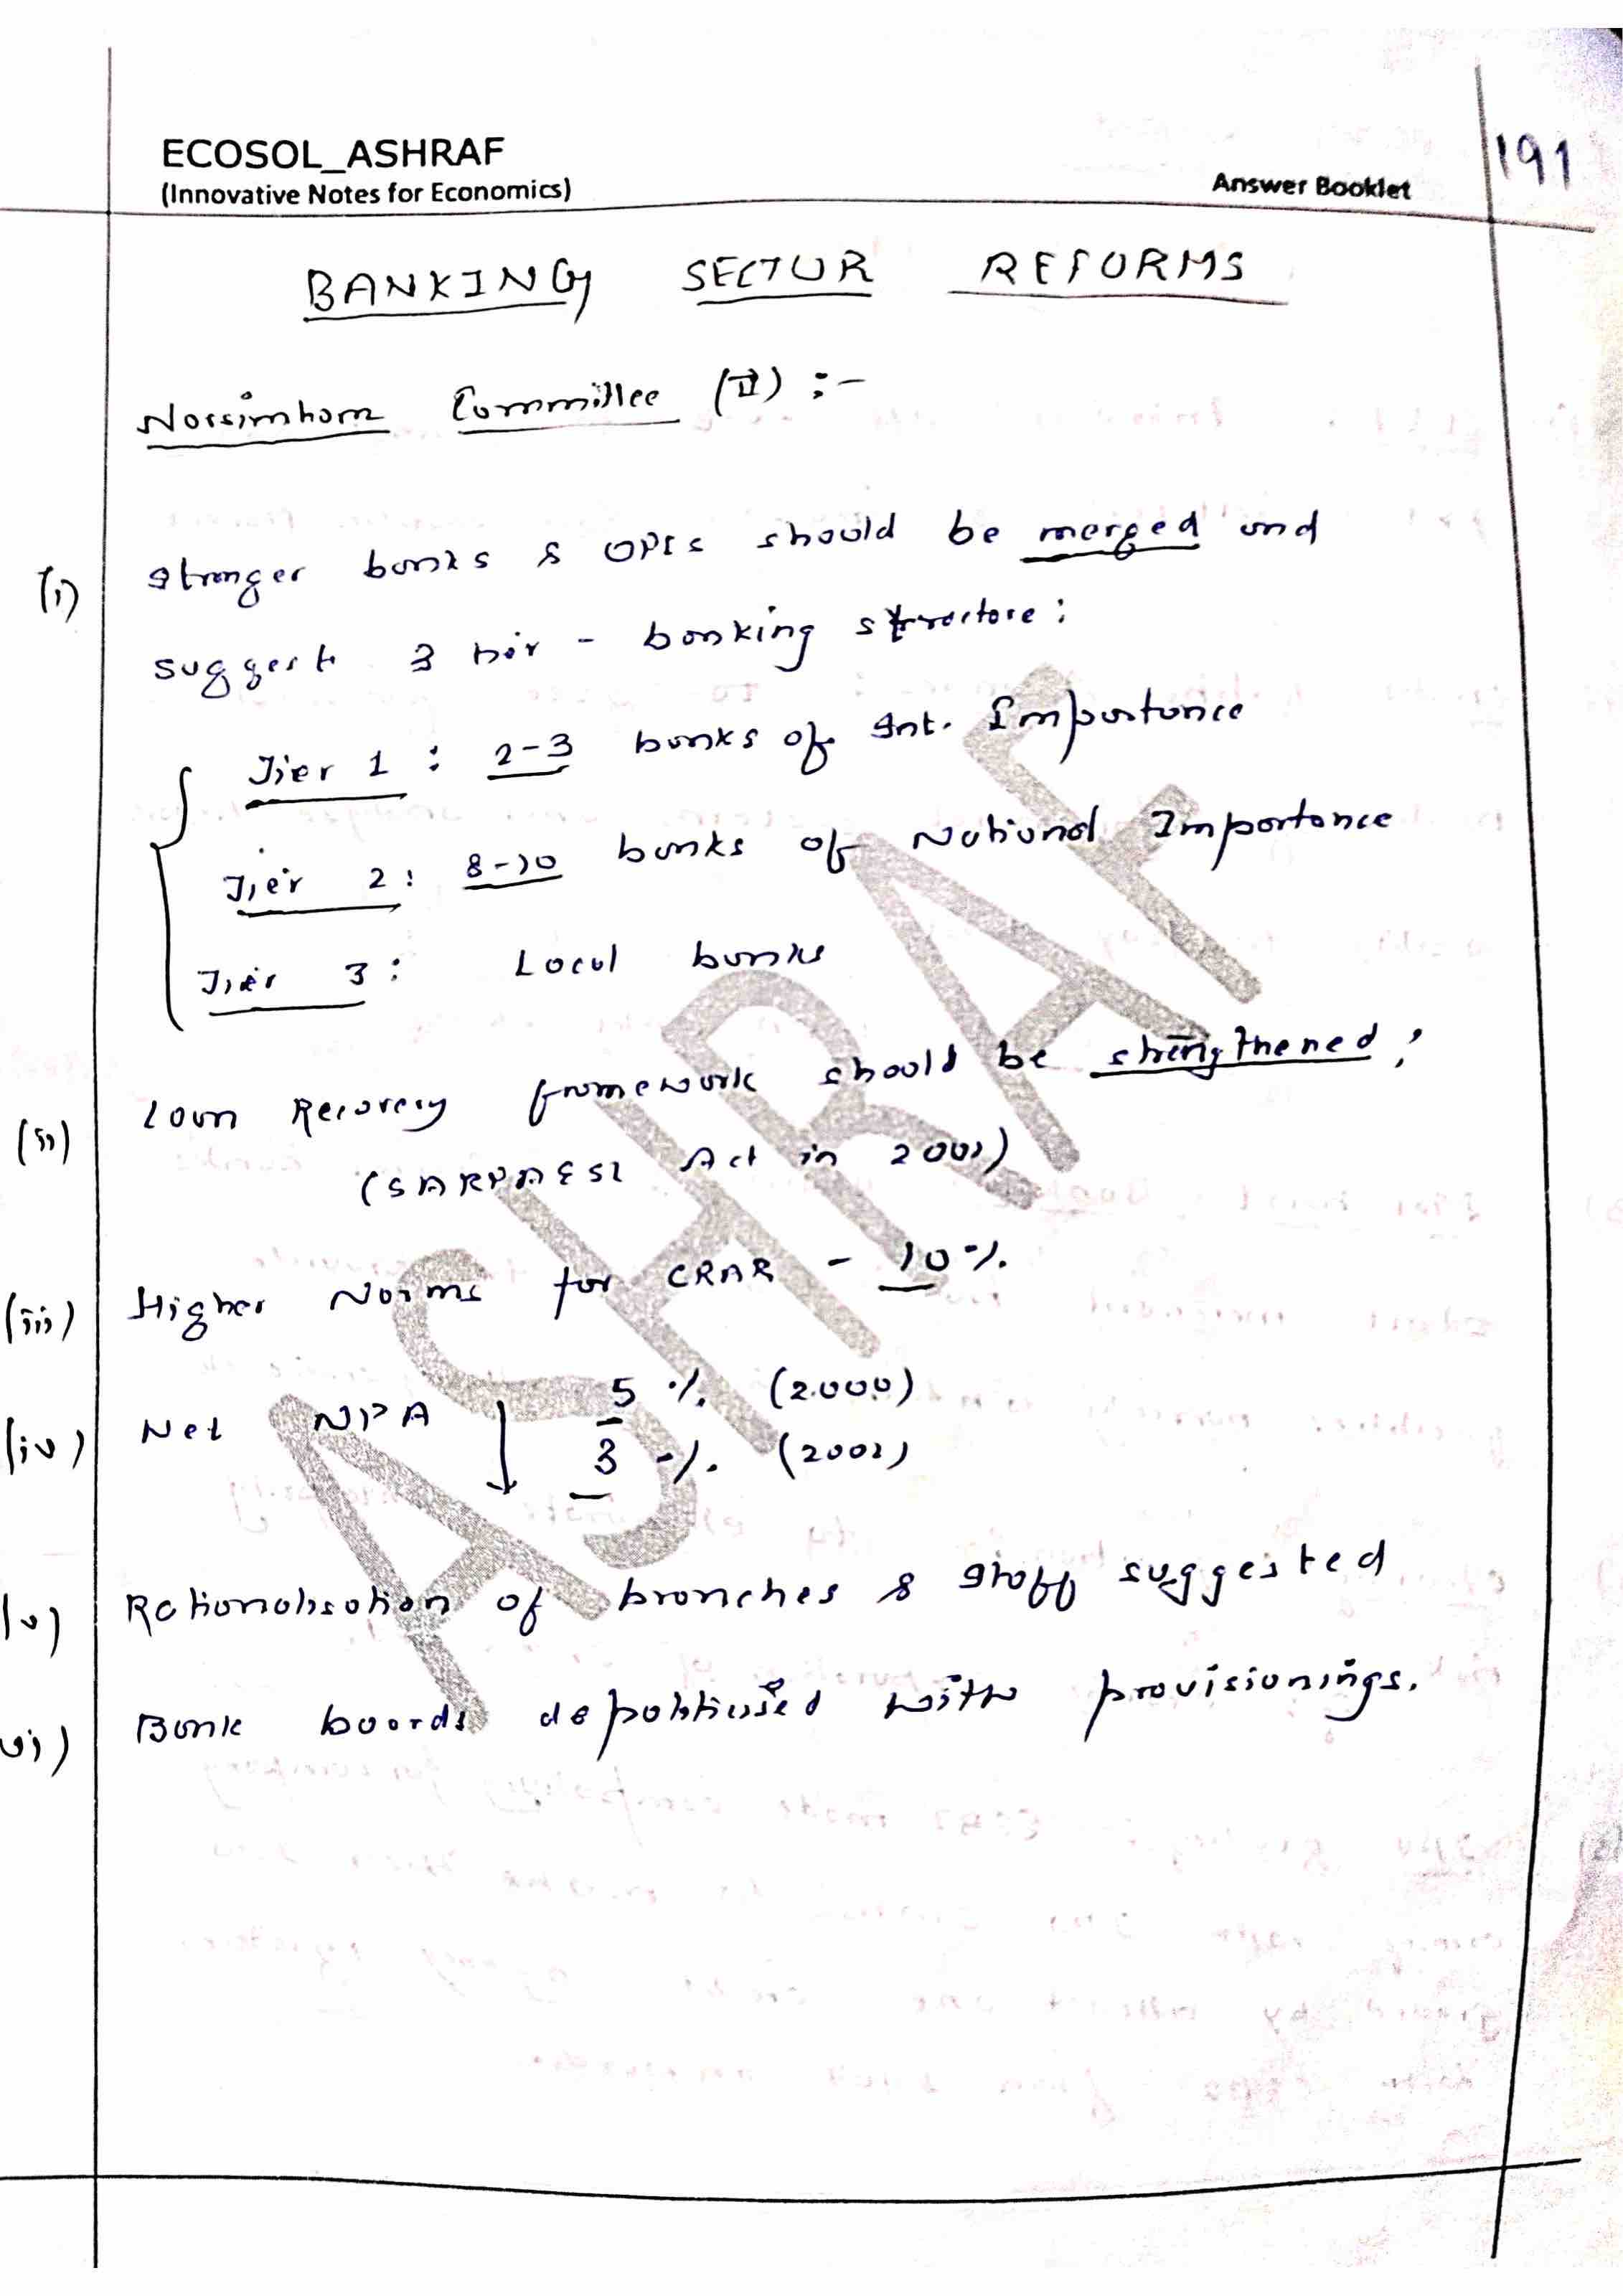 ECOSOL_ASHRAF
(Innovative Notes for Economics)
Answer Booklet
191
BANKING SECTOR REFORMS
Narsimham Committee (II) :-
(i) Stronger banks & DFIs should be merged and
suggest 3 tier - banking structure :
Tier 1 : 2-3 banks of Int. Importance
Tier 2 : 8-10 banks of National Importance
Tier 3 : Local banks
(ii) Loan Recovery framework should be strengthened ;
(SARFAESI Act in 2002)
(iii) Higher Norms for CRAR - 10%.
(iv) Net NPA ↓ 5 %. (2000)
3 %. (2002)
(v) Rationalisation of branches & staff suggested
(vi) Bank boards depoliticised with provisionings.
ASHRAF